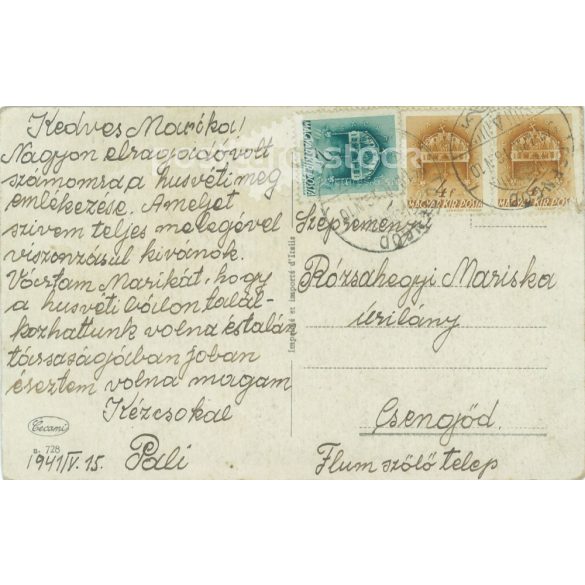 Kedves Marika!
Nagyon elragadó volt
számomra a husvéti meg
emlékezése. Amelyet
szivem teljes melegével
viszonzásul kivánok.
Vártam Marikát, hogy
a husvéti bálon talál-
kozhattunk volna és talán
társaságjában joban
éreztem volna magam
Kézcsokal
1941/IV. 15. Pali
Cecami
n. 728
Imprimé et importé d'Italie
MAGYAR KIR. POSTA
4f
MAGYAR KIR. POSTA
MAGYAR KIR. POSTA
Rózsahegyi Mariska
úrilány
Csengőd.
szőlő telep